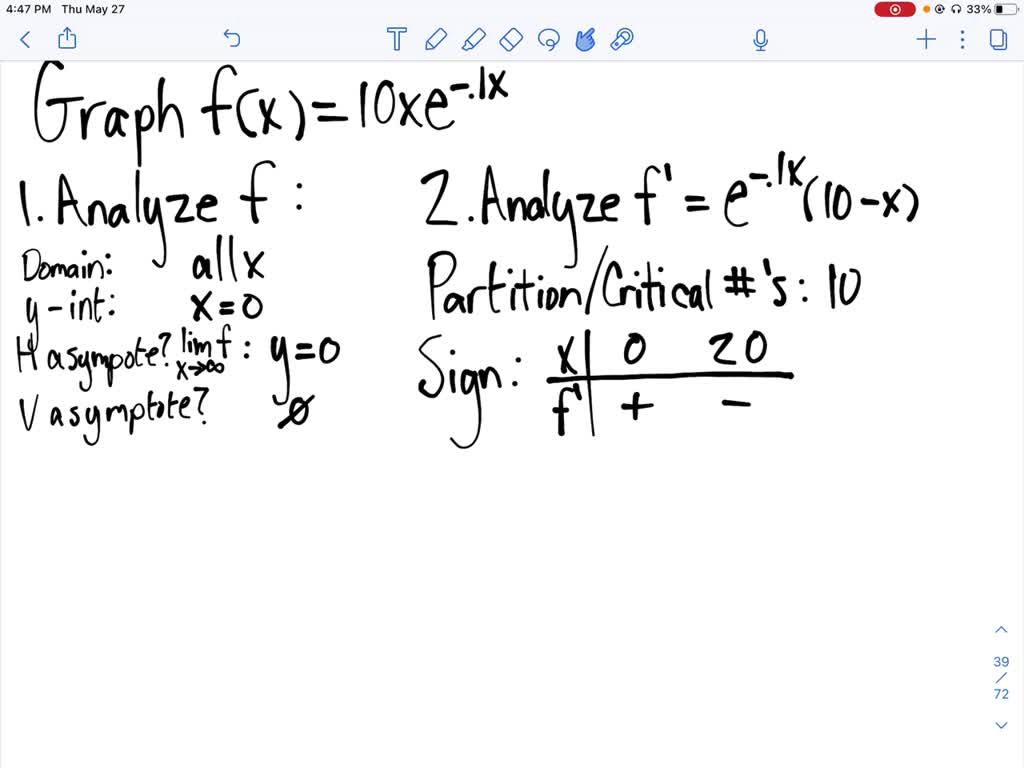 4:47 PM Thu May 27
33%
Graph f(x)=10xe^-.1x
1. Analyze f :
Domain: all x
y-int: x=0
H asympote? lim x→∞ f : y=0
V asymptote? ∅
2. Analyze f' = e^-.1x(10-x)
Partition/Critical #'s: 10
Sign: x | 0 20
f' | + -
39
/
72